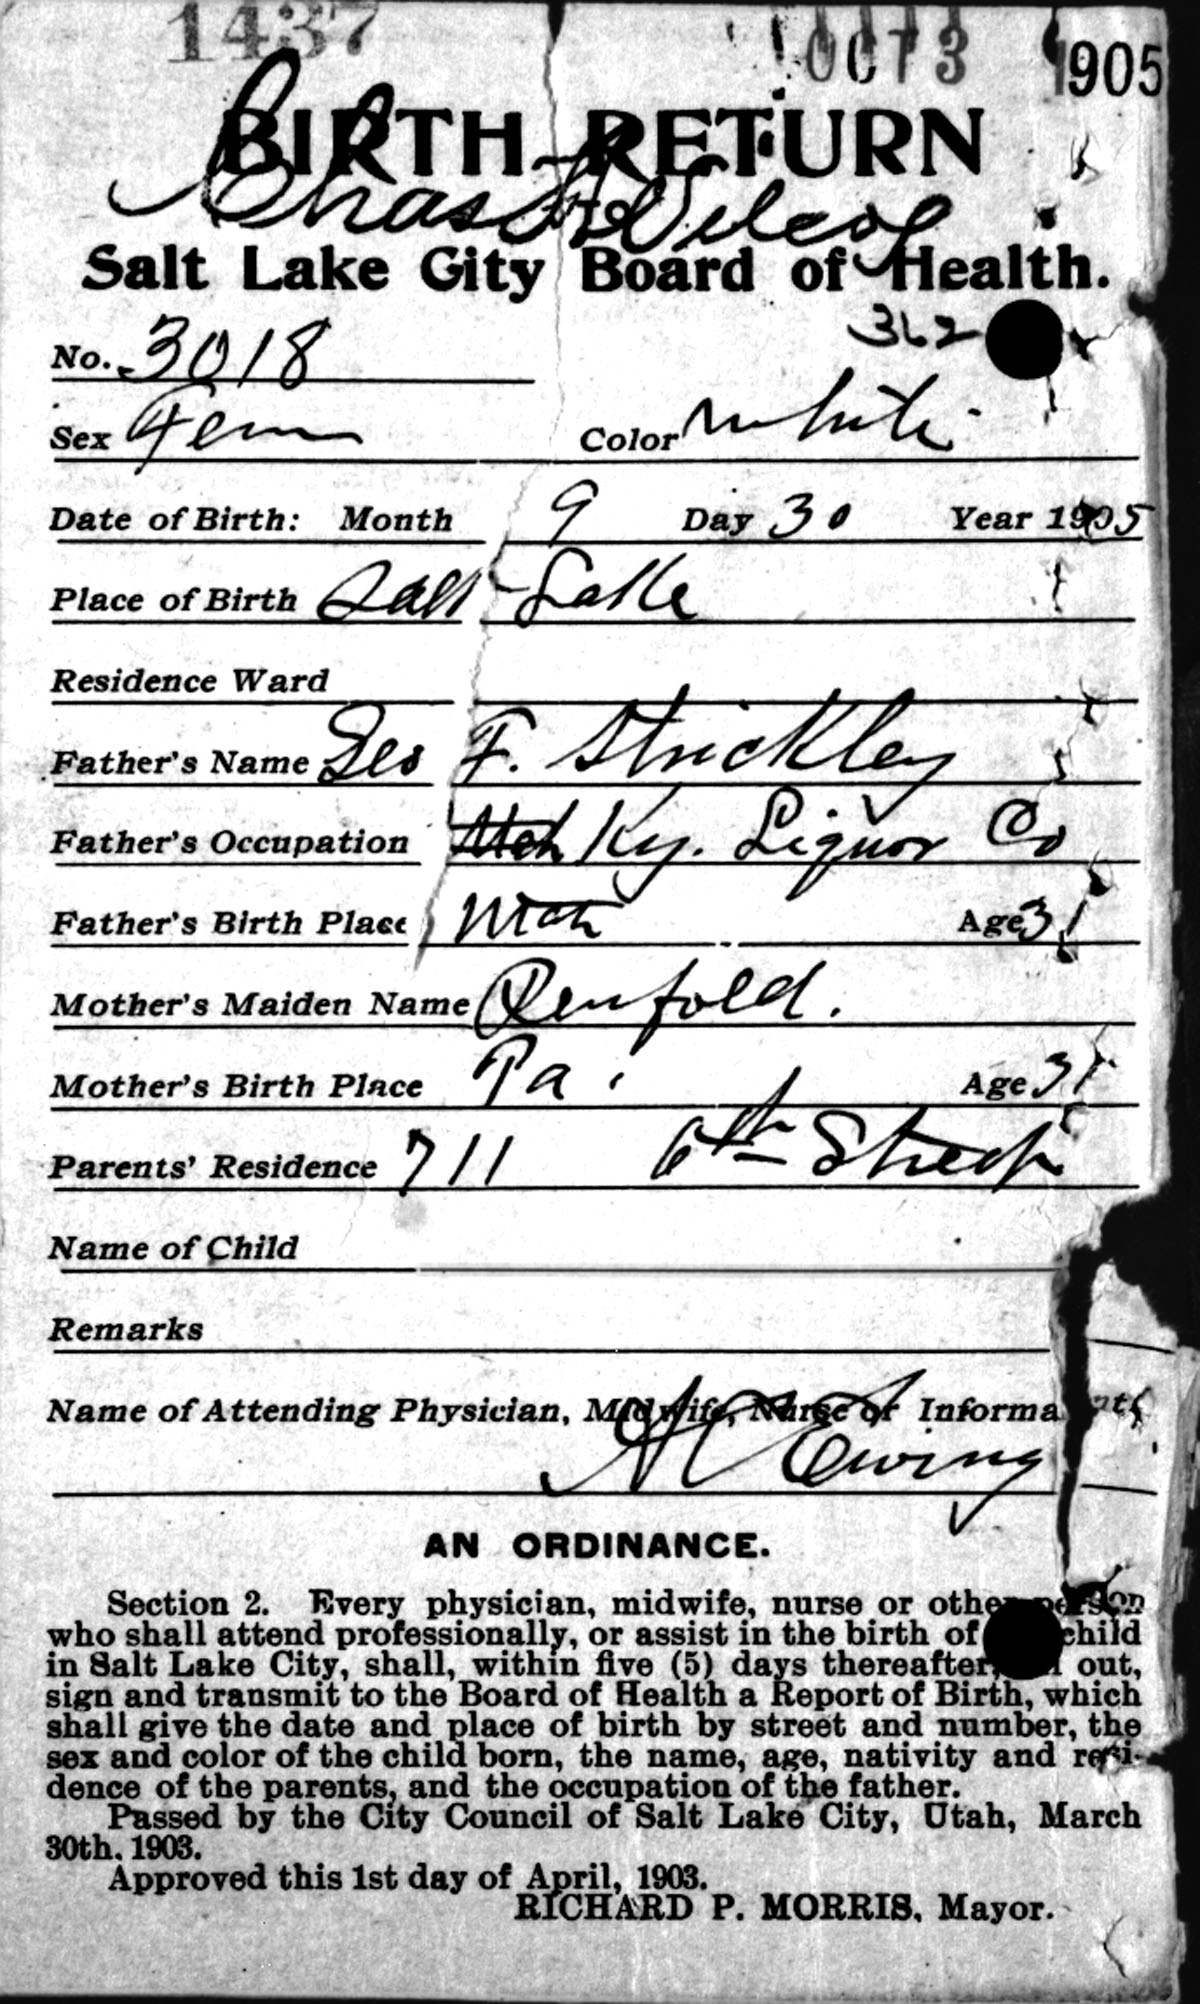 1437 OCT 3 1905
BIRTH RETURN
Chas Wilcox
TO
Salt Lake City Board of Health.
362
No. 3018
Sex Fem Color White
Date of Birth: Month 9 Day 30 Year 1905
Place of Birth Salt Lake
Residence Ward
Father's Name Geo F. Strickley
Father's Occupation Utah Ky. Liquor Co
Father's Birth Place Utah Age 31
Mother's Maiden Name Penfold.
Mother's Birth Place Pa. Age 31
Parents' Residence 711 6th Street
Name of Child
Remarks
Name of Attending Physician, Midwife, Nurse or Informant
A C Ewing
AN ORDINANCE.
Section 2. Every physician, midwife, nurse or other person
who shall attend professionally, or assist in the birth of child
in Salt Lake City, shall, within five (5) days thereafter, out,
sign and transmit to the Board of Health a Report of Birth, which
shall give the date and place of birth by street and number, the
sex and color of the child born, the name, age, nativity and resi-
dence of the parents, and the occupation of the father.
Passed by the City Council of Salt Lake City, Utah, March
30th, 1903.
Approved this 1st day of April, 1903.
RICHARD P. MORRIS, Mayor.